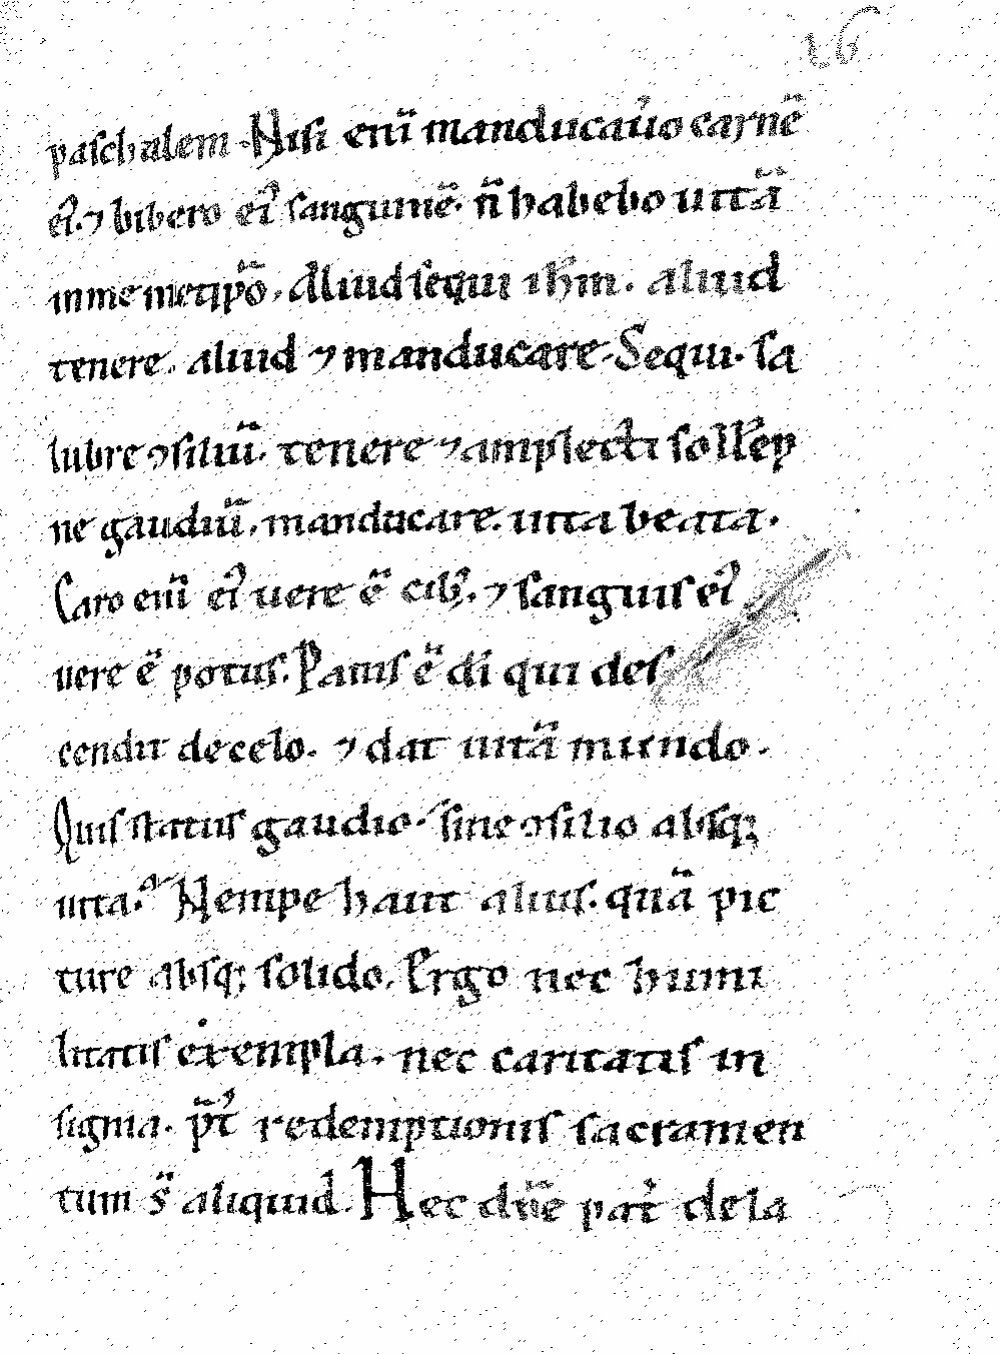 26
paſchalem. Niſi eni̅ manducau̾o carne̅
ei᷒. ⁊ bibero ei᷒ ſanguine̅. n̅ habebo uita̅
in me metip̅o. Aliud ſequi ih̅m. aliud
tenere. aliud ⁊ manducare. Sequi. ſa
lubre ꝯſiliu̅. tenere ⁊ amplecti ſoll̅ep
ne gaudiu̅. manducare. uita beata.
Caro eni̅ ei᷒ uere e̅ cib᷒. ⁊ ſanguiſ ei᷒
uere e̅ potuſ. Paniſ e̅ di qui deſ
cendit de celo. ⁊ dat uita̅ mundo.
Quiſ ſtatuſ gaudio. ſine ꝯſilio abſq;
uita? Nempe haut aliuſ. qua̅ pic
ture abſq; ſolido. Ergo nec humi
litatiſ exempla. nec caritatiſ in
ſigma. p̅t᷒ redemptioniſ ſacramen
tum s̅ aliquid. Hec du̅e pat᷒ de la